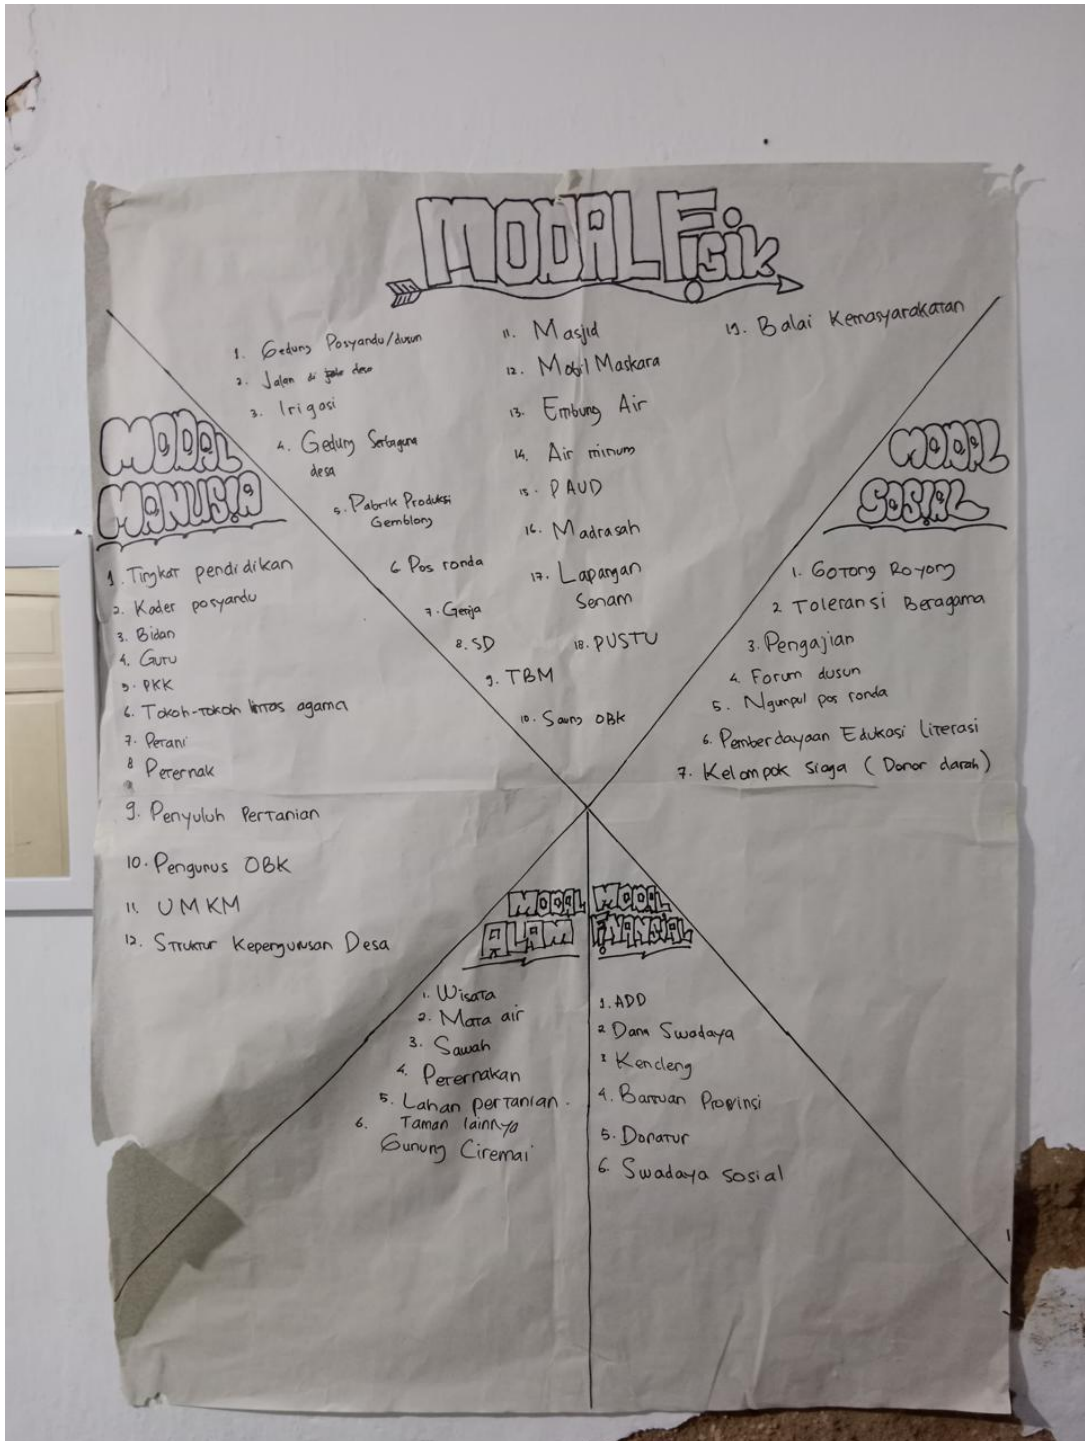 MODAL Fisik
1. Gedung Posyandu/dusun
2. Jalan di desa
3. Irigasi
4. Gedung Serbaguna
desa
5. Pabrik Produksi
Gemblong
6 Pos ronda
7. Gereja
8. SD
9. TBM
10. Saung OBK
11. Masjid
12. Mobil Maskara
13. Embung Air
14. Air minum
15. PAUD
16. Madrasah
17. Lapangan
Senam
18. PUSTU
19. Balai Kemasyarakatan
MODAL
MANUSIA
1. Tingkat pendidikan
2. Kader posyandu
3. Bidan
4. Guru
5. PKK
6. Tokoh-tokoh lintas agama
7. Petani
8 Peternak
9. Penyuluh Pertanian
10. Pengurus OBK
11. UMKM
12. Struktur Kepengurusan Desa
MODAL
SOSIAL
1. Gotong Royong
2 Toleransi Beragama
3. Pengajian
4. Forum dusun
5. Ngumpul pos ronda
6. Pemberdayaan Edukasi Literasi
7. Kelompok Siaga (Donor darah)
MODAL
ALAM
1. Wisata
2. Mata air
3. Sawah
4. Peternakan
5. Lahan pertanian.
6. Taman lainnya
Gunung Ciremai
MODAL
FINANSIAL
1. ADD
2 Dana Swadaya
3 Kencleng
4. Bantuan Provinsi
5. Donatur
6. Swadaya sosial